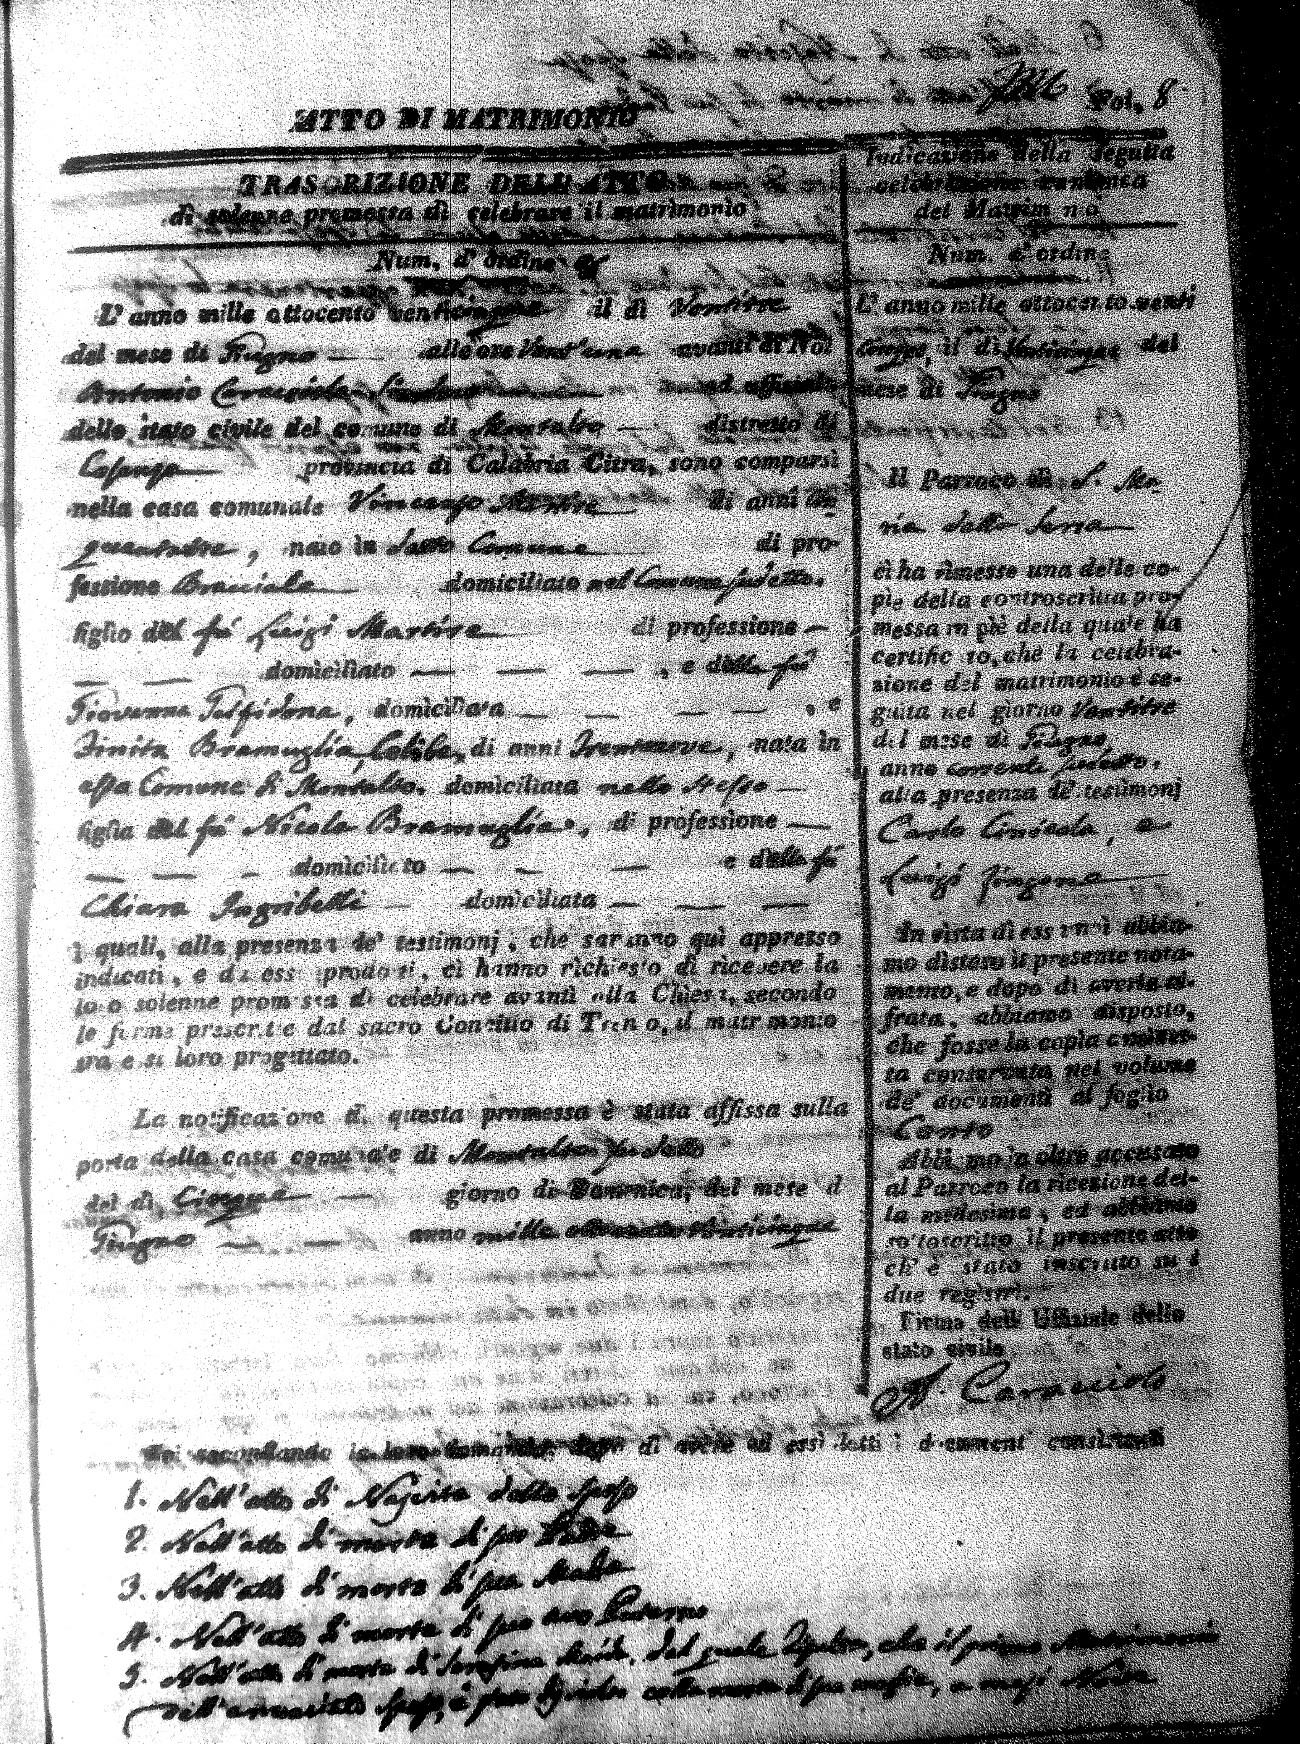 Fol. 8
ATTO DI MATRIMONIO
TRASCRIZIONE DELL' ATTO
di solenne promessa di celebrare il matrimonio
Num. d' ordine
L' anno mille ottocento venticinque il dì Ventitre
del mese di Giugno — alle ore Vent'una avanti di Noi
Antonio Caracciolo Sindaco ed uffiziale
dello stato civile del comune di Montalto — distretto di
Cosenza provincia di Calabria Citra, sono comparsi
nella casa comunale Vincenzo Martire di anni
, nato in detto Comune di pro-
fessione Bracciale domiciliato nel Comune sudetto.
figlio del fu Luigi Martire di professione —
— — domiciliato — — — , e della fu
Giovanna , domiciliata — — — — , e
Bramuglia, di anni Trentanove, nata in
esso Comune di Montalto. domiciliata nello stesso —
figlia del fu Nicola Bramuglia, di professione —
— — — domiciliato — — — e della fu
Chiara — domiciliata — — —
i quali, alla presenza de' testimonj, che saranno quì appresso
indicati, e da essi prodotti, ci hanno richiesto di ricevere la
loro solenne promessa di celebrare avanti alla Chiesa, secondo
le forme prescritte dal sacro Concilio di Trento, il matrimonio
tra essi loro progettato.
La notificazione di questa promessa è stata affissa sulla
porta della casa comunale di Montalto sudetto
del dì Cinque — giorno di Domenica, del mese d
Giugno — — anno mille ottocento Venticinque
Noi secondando la loro domanda, dopo di avere ad essi letti i documenti consistenti
1. Nell'atto di Nascita dello sposo
2. Nell'atto di morte di suo Padre
3. Nell'atto di morte di sua Madre
4. Nell'atto di morte di suo avo Paterno
5. Nell'atto di morte di Serafina del quale risulta, che il primo Matrimonio
dell'anzidetto sposo, è stato colla morte di sua moglie,
Indicazione della seguita
celebrazione canonica
del Matrimonio
Num. d' ordine
L' anno mille ottocento venti
cinque, il dì Venticinque del
mese di Giugno
Il Parroco di S. Ma-
ria della Serra —
ci ha rimesse una delle co-
pie della controscritta pro-
messa in piè della quale ha
certificato, che la celebra-
zione del matrimonio è se-
guita nel giorno Ventitre
del mese di Giugno,
anno corrente sudetto.
alla presenza de' testimonj
Carlo , e
Luigi
In vista di essa noi abbia-
mo disteso il presente nota-
mento, e dopo di averla ci-
frata, abbiamo disposto,
che fosse la copia anzidet-
ta conservata nel volume
de' documenti al foglio
Cento
Abbiamo in oltre accusato
al Parroco la ricezione del-
la medesima, ed abbiamo
sottoscritto il presente atto
ch' è stato inscritto su i
due registri.
Firma dell' Uffiziale dello
stato civile
A. Caracciolo